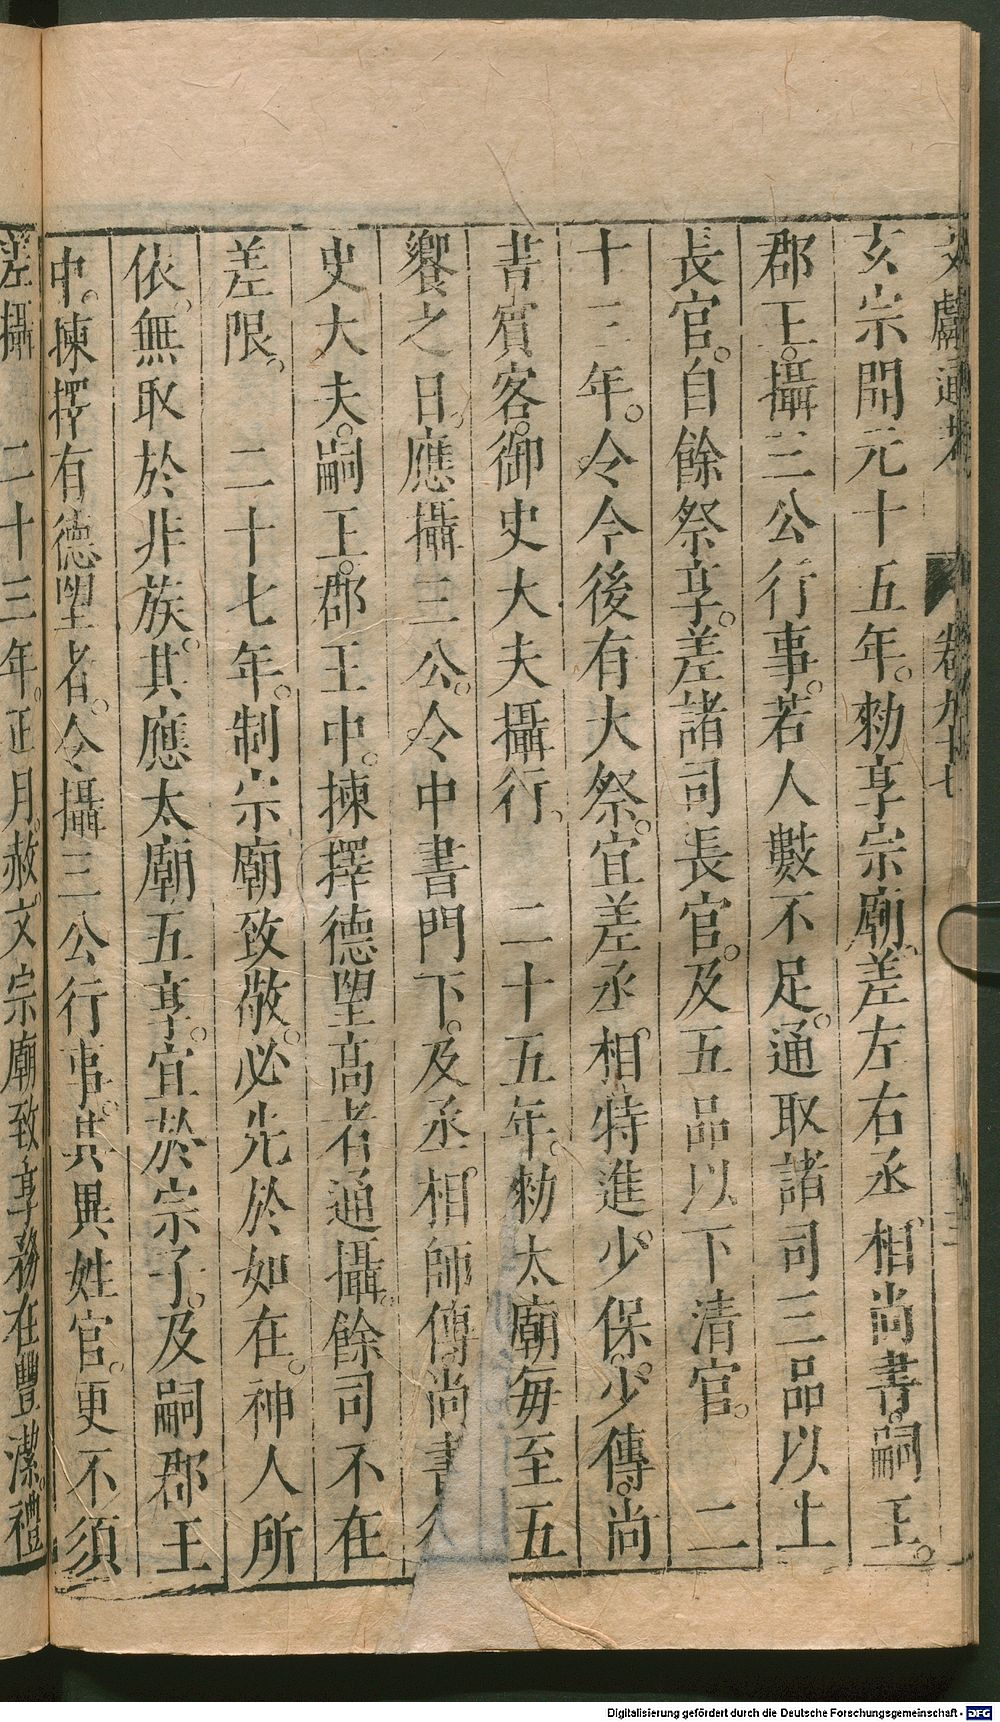 文獻通考 卷九十七 三
玄宗開元十五年。勑享宗廟。差左右丞相尚書。嗣王。
郡王。攝三公行事。若人數不足。通取諸司三品以上
長官。自餘祭享。差諸司長官。及五品以下清官。 二
十三年。令今後有大祭。宜差丞相。特進。少保。少傳。尚
書。賓客。御史大夫攝行。 二十五年。勑太廟每至五
饗之日。應攝三公。令中書門下。及丞相。師傅。尚書。
史大夫。嗣王。郡王中。揀擇德望高者通攝。餘司不在
差限。 二十七年。制宗廟致敬。必先於如在。神人所
依。無取於非族。其應太廟五享。宜於宗子。及嗣郡王
中。揀擇有德望者。令攝三公行事。其異姓官。更不須
差攝 二十三年。正月。赦文宗廟致享務在豐潔。禮
Digitalisierung gefördert durch die Deutsche Forschungsgemeinschaft - DFG